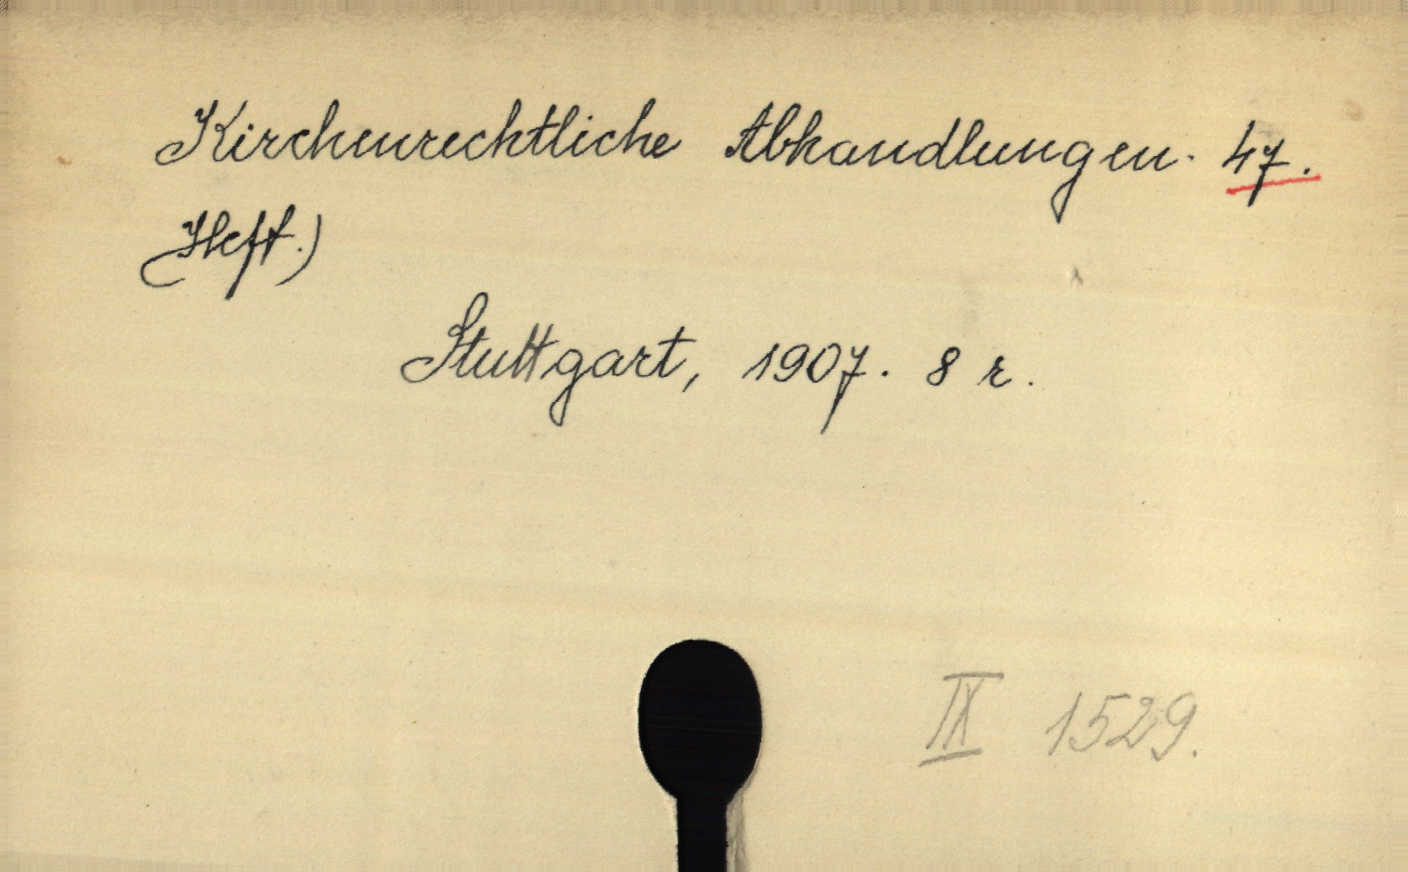 Kirchenrechtliche Abhandlungen. 47.
Heft.)
Stuttgart, 1907. 8 r.
IX 1529.